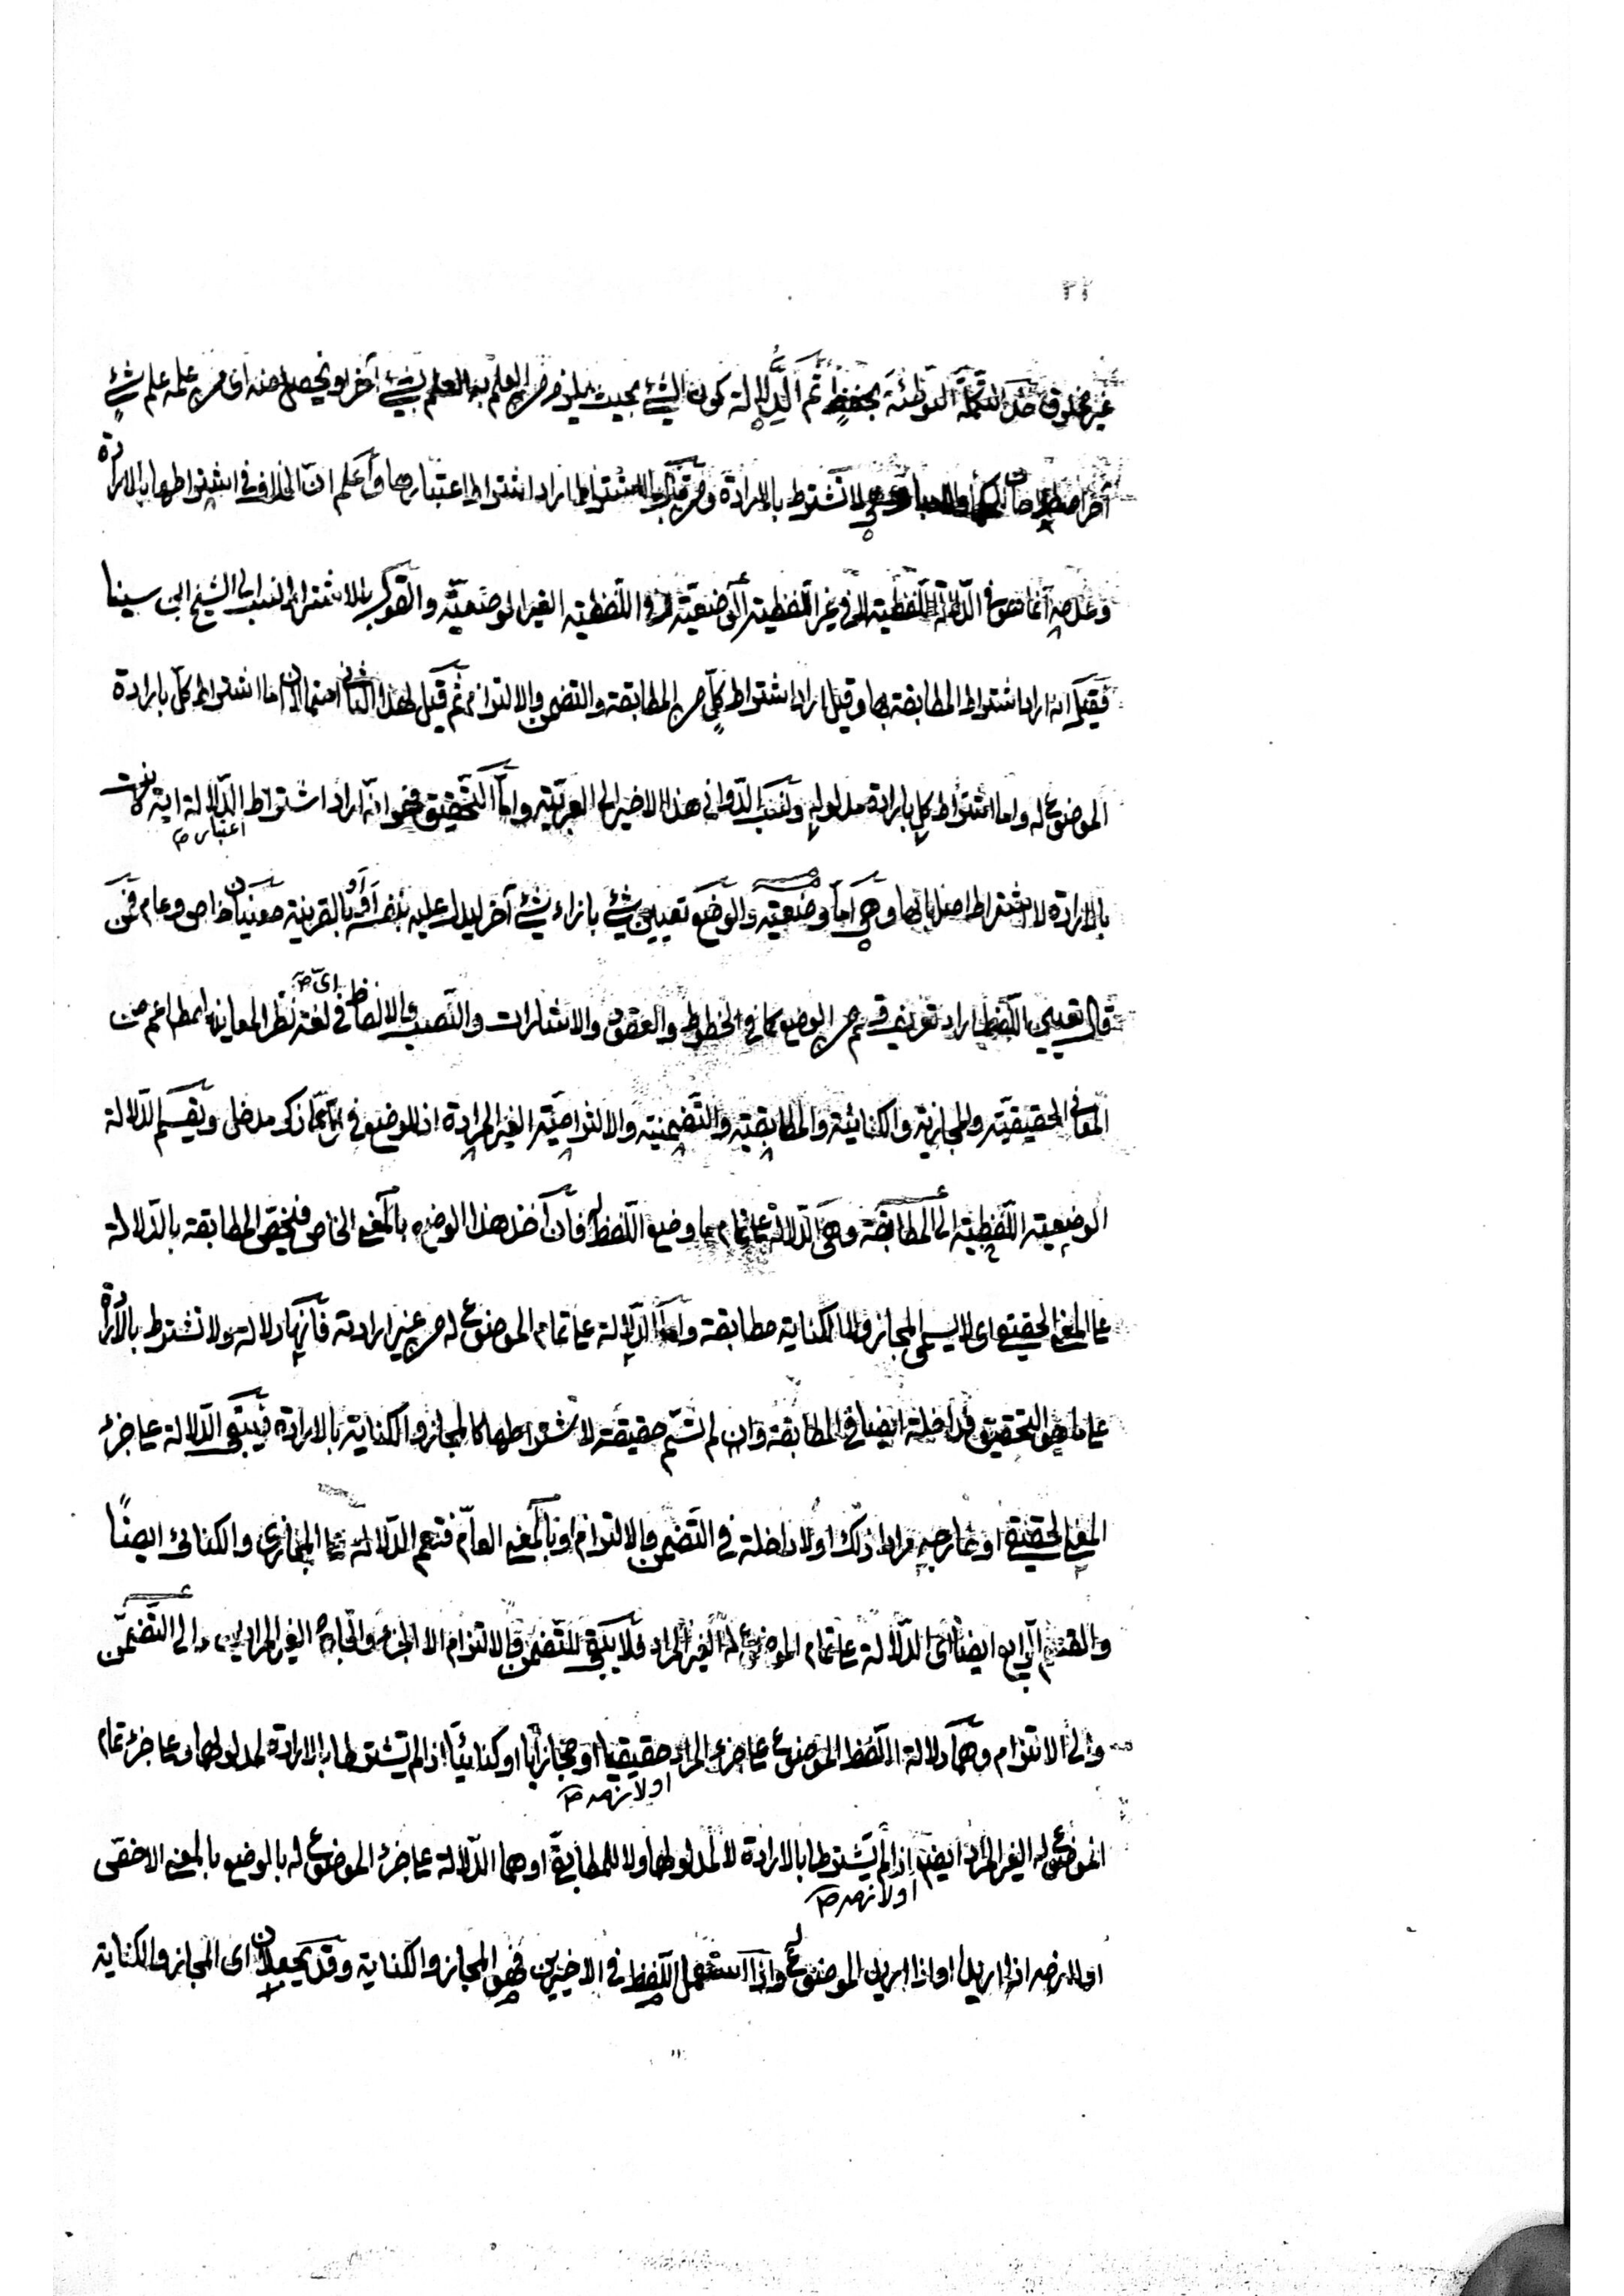 ٢٢
ثم الدلالة كون الشئ بحيث يلزم من العلم به العلم بشئ آخر او يحصل منه اى من علمه علم شئ
آخر لا تشترط بالارادة ومن قيل بالاشتراط اراد اشتراط اعتبارها واعلم ان الخلاف فى اشتراطها بالارادة
وعدمه انما هو فى الدلالة اللفظية لا فى غير اللفظية الوضعية او اللفظية الغير الوضعية والقول بالاشتراط لنسب الى الشيخ ابى سينا
فقيل انه اراد اشتراط المطابقة بها وقيل اراد اشتراط كل من المطابقة والتضمن والالتزام ثم قيل لهذا الثانى احتمالان اما اشتراط كل بارادة
الموضوع له واما اشتراط كل بارادة مدلوله ونسب الدوانى هذا الاخير الى العربية واما التحقيق فهو انه اراد اشتراط الدلالة
اعتبار صح
بالارادة لا اشتراط اصلها بها وهى اما وضعية والوضع تعيين شئ بازاء شئ آخر ليدل عليه بنفسه او بالقرينة معنيان خاص وعام فمن
قال تعيين اللفظ اراد تعريف قسم من الوضع كما فى الخطوط والعقود والاشارات والنصب والالفاظ فى لغة نظر المعاينة اعم من
اى صح
المعانى الحقيقية والمجازية والكنائية والمطابقية والتضمنية والالتزامية الغير المرادة اذ للوضع فى كل مما ذكر مدخل وينقسم الدلالة
الوضعية اللفظية الى المطابقة وهى الدلالة على تمام ما وضع اللفظ له فان اخذ هذا الوضع بالمعنى الخاص فتختص المطابقة بالدلالة
على المعنى الحقيقى اى لا يسمى المجاز ولا الكناية مطابقة واما الدلالة على تمام الموضوع له من غير ارادته فانها دلالة ولا تشترط بالارادة
على ما هو التحقيق فداخلة ايضا فى المطابقة وان لم تسم حقيقة لاشتراطها كالمجاز والكناية بالارادة فيبقى الدلالة على جزء
المعنى الحقيقى او خارجه مرادا ذلك او لا داخلة فى التضمن والالتزام او بالمعنى العام فتعم الدلالة على المجازى والكنائى ايضًا
والقسم الرابع ايضا اى الدلالة على تمام الموضوع له الغير المراد فلا يبقى للتضمن والالتزام الا الجزء والخارج الغير المرادين والى التضمن
والى الالتزام وهما دلالة اللفظ الموضوع على جزء المراد حقيقيا او مجازيا او كنائيا اذ لم تشترطا بالارادة لمدلولهما او على جزء تمام
او لازمه صح
الموضوع له الغير المراد ايضا اذ لم يشترطا بالارادة لا لمدلولهما ولا للمطابقة او هما الدلالة على جزء الموضوع له بالوضع بالمعنى الاخص
او لازمه صح
او لازمه اذا اريدا او اذا اريد الموضوع له واذا استعمل اللفظ فى الاخيرين فهو المجاز والكناية وقد يجعلان اى المجاز والكناية